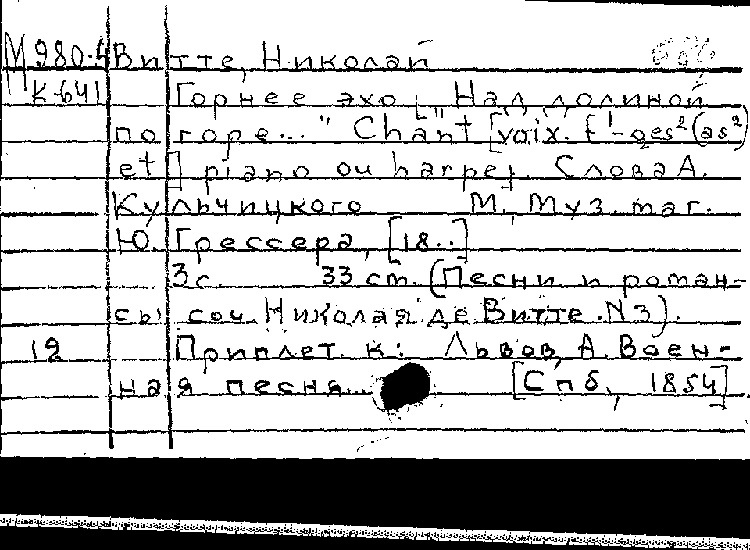 М 980-4 Витте, Николай
К-641 Горнее эхо ["Над долиной
по горе..." Chant [voix. f¹-ges²(as²)
et] piano ou harpe]. Слова А.
Кульчицкого М., Муз. маг.
Ю. Грессера, [18..]
3 с. 33 cm. (Песни и роман-
сы соч. Николая де Витте. N 3).
12 Приплет. к: Львов, А. Воен-
ная песня... [Спб., 1854]